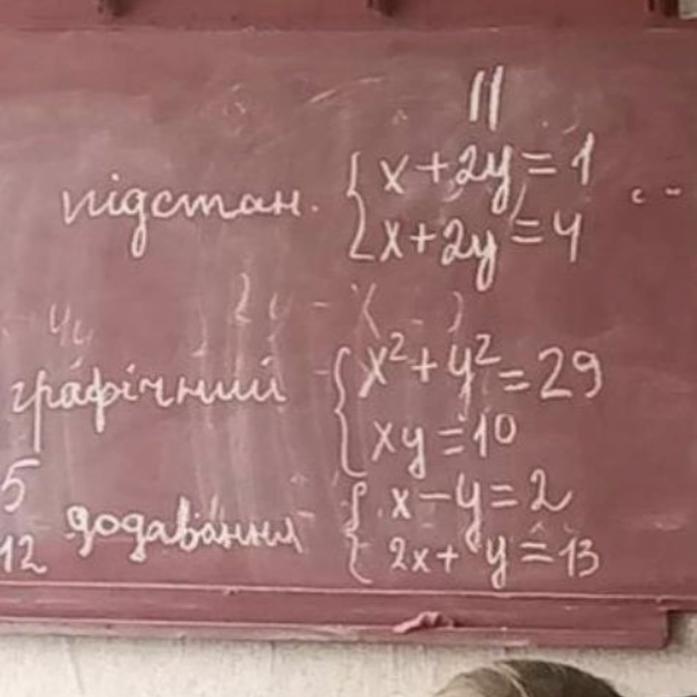 II
підстан. { x + 2y = 1
x + 2y = 4
графічний { x² + y² = 29
xy = 10
5 додавання { x - y = 2
12 2x + y = 13